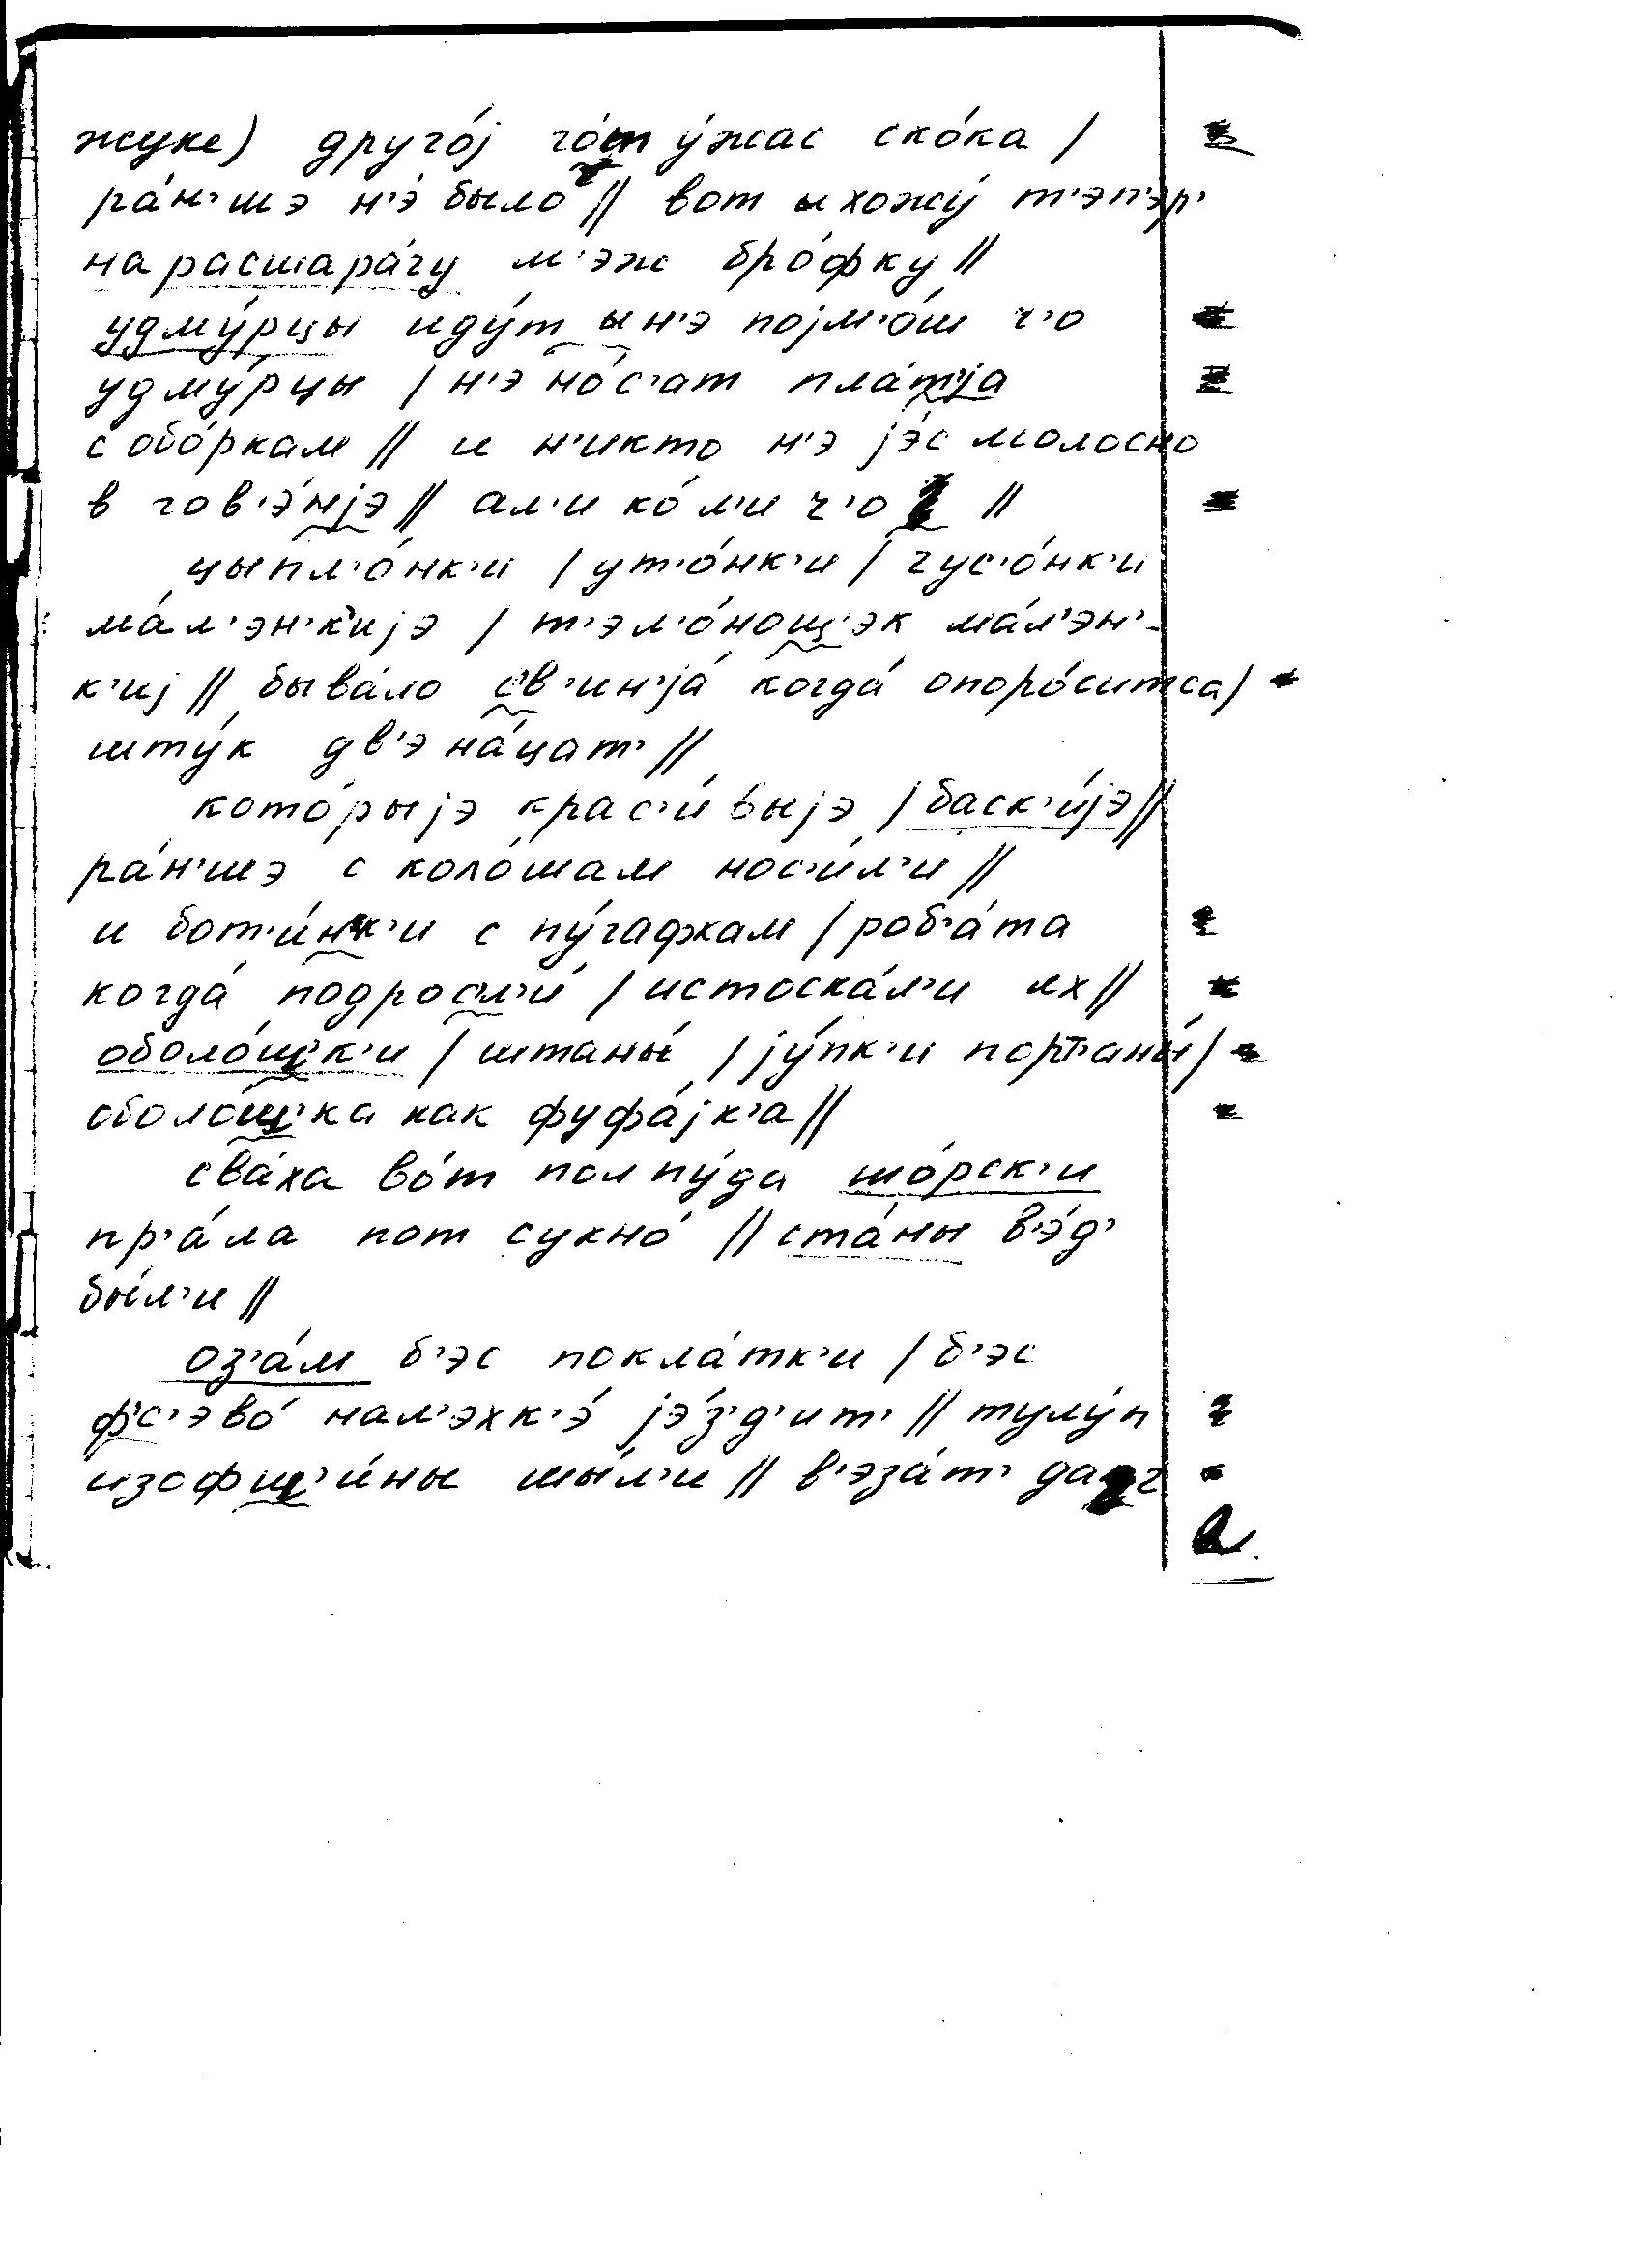 жуке) друго́j го́т у́жас ско́ка /
ра́н'шэ н'э́ было // вот ы хожу́ т'эп'эр'
на расшара́гу м'эж бро́фку //
удму́рцы иду́т ы н'э поjм'о́ш ч'о
удму́рцы / н'э но́с'ат пла́т'jа
с обо́ркам // и н'икто н'э jэ́с молосно
в гов'э́нjэ // ал'и ко́л'и ч'о //
цыпл'о́нк'и / ут'о́нк'и / гус'о́нк'и
ма́л'эн'к'иjэ / т'эл'о́нощ'эк ма́л'эн'-
к'иj // быва́ло св'ин'jа́ когда́ опоро́ситса /
шту́к дв'эна́цат' //
кото́рыjэ крас'и́выjэ / баск'и́jэ //
ра́н'шэ с коло́шам нос'и́л'и //
и бот'и́нк'и с пу́гафкам / роб'а́та
когда́ подросл'и́ / истоска́л'и их //
оболо́щ'к'и / штаны́ / jу́пк'и порт'аны́ /
оболо́щ'ка как фуфа́jк'а //
сва́ха во́т пол пу́да шо́рск'и
пр'а́ла пот сукно́ // ста́ны в'э́д'
бы́л'и //
оз'а́м б'эс покла́тк'и / б'эс
ф'с'эво́ нал'эхк'э́ jэ́з'д'ит' // тулу́п
изофщ'и́ны шы́л'и // в'эза́т'